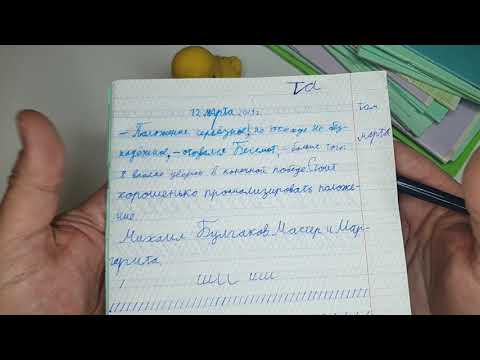 Та
12 марта 2019г.
— Положение серьёзное, но отнюдь не без-
надёжное, – отозвался Бегемот, – больше того:
я вполне уверен в конечной победе. Стоит
хорошенько проанализировать положе-
ние.
Михаил Булгаков. Мастер и Мар-
гарита
ШШ ШШ
Там
марта